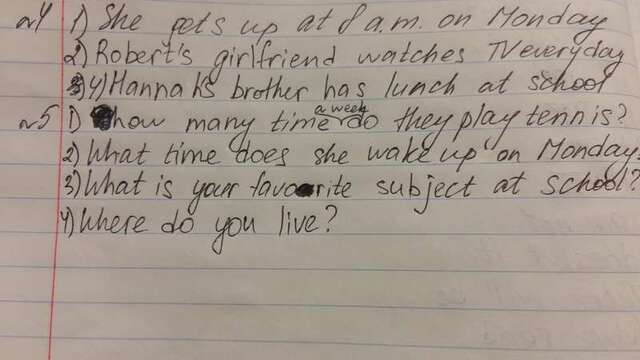 №4 1) She gets up at 8 a.m. on Monday
2) Robert's girlfriend watches TV everyday
4) Hannah's brother has lunch at school
№5 1) how many time a week do they play tennis?
2) What time does she wake up on Monday.
3) What is your favorite subject at school?
4) Where do you live?